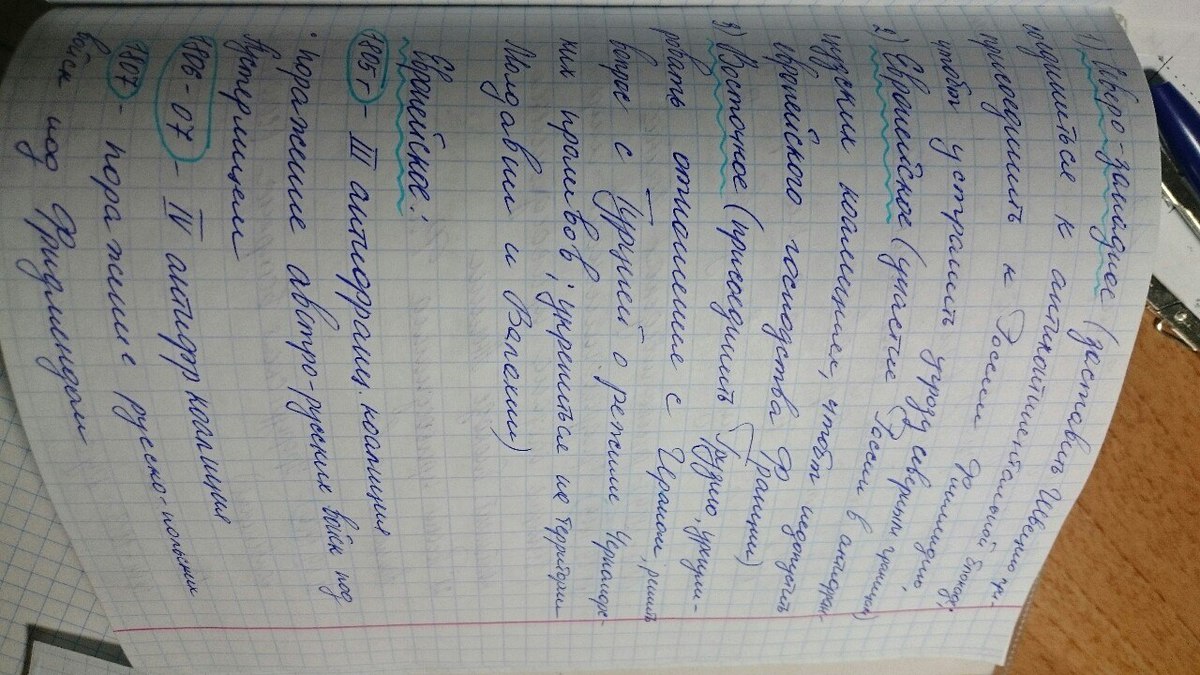 1) Северо-западное (заставить Швецию при-
соединиться к антиконтинентальной блокаде;
присоединить к России Финляндию,
чтобы устранить угрозу северных границ)
2) Европейское (участие России в антифран-
цузских коалициях, чтобы недопустить
европейского господства Франции)
3) Восточное (присоединить Грузию, урегули-
ровать отношение с Ираном, решить
вопрос с Турцией о режиме Черноморс-
ких проливов; укрепиться на территории
Молдавии и Валахии)
Европейское:
1805г - III антифранц. коалиция
• поражение австро-русских войск под
Аустерлицем
1806-07 - IV антифр коалиция
1807 - поражение русско-польских
войск под Фридлендом